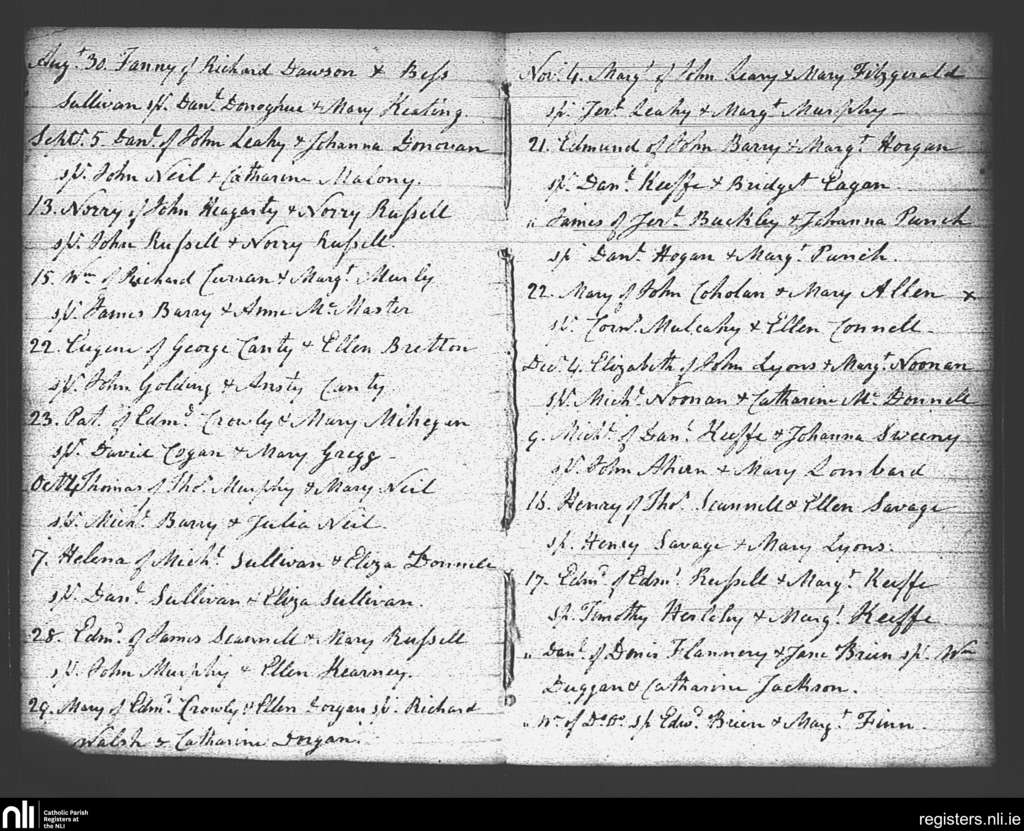 Augt 30. Fanny of Richard Dawson & Bess
Sullivan sps. Danl Donoghue & Mary Keating.
Septr 5. Danl of John Leahy & Johanna Donovan
sps. John Neil & Catharine Malony.
13. Norry of John Heagarty & Norry Russell
sps. John Russell & Norry Russell.
15. Wm of Richard Curran & Margt Murly
sps. James Barry & Anne McMaster
22. Eugene of George Canty & Ellen Bretton
sps. John Golding & Ansty Canty.
23. Pat. of Edmd Crowly & Mary Mihegan
sps. David Cogan & Mary Gregg -
Oct 4 Thomas of Thos Murphy & Mary Neil
sps. Michl Barry & Julia Neil.
7. Helena of Michl Sullivan & Eliza Donnell
sps. Danl Sullivan & Eliza Sullivan.
28. Edmd of James Scannell & Mary Russell
sps. John Murphy & Ellen Kearney.
29. Mary of Edmd Crowly & Ellen Dorgan sps. Richard
Walsh & Catharine Dorgan.
Novr 4. Margt of John Leary & Mary Fitzgerald
sps. Jert Leahy & Margt Murphy -
21. Edmund of John Barry & Margt Horgan
sps. Danl Keeffe & Bridget Eagan.
" James of Jert Buckley & Johanna Punch
sps Danl Hogan & Margt Punch.
22. Mary of John Coholan & Mary Allen x
sps. Corns Mulcahy & Ellen Connell.
Decr 4. Elizabeth of John Lyons & Margt Noonan
sps. Michl Noonan & Catharine McDonnell
9. Michl of Danl Keeffe & Johanna Sweeny
sps. John Ahern & Mary Lombard
16. Henry of Thos Scannell & Ellen Savage
sps. Henry Savage & Mary Lyons.
17. Edmd of Edmd Russell & Margt Keeffe
sps. Timothy Herlihy & Margt Keeffe
" Danl of Denis Flannery & Jane Brien sps. Wm
Duggan & Catharine Jackson.
" Wm of Do Do sps Edwd Brien & Margt Finn.
nli
Catholic Parish
Registers at
the NLI
registers.nli.ie